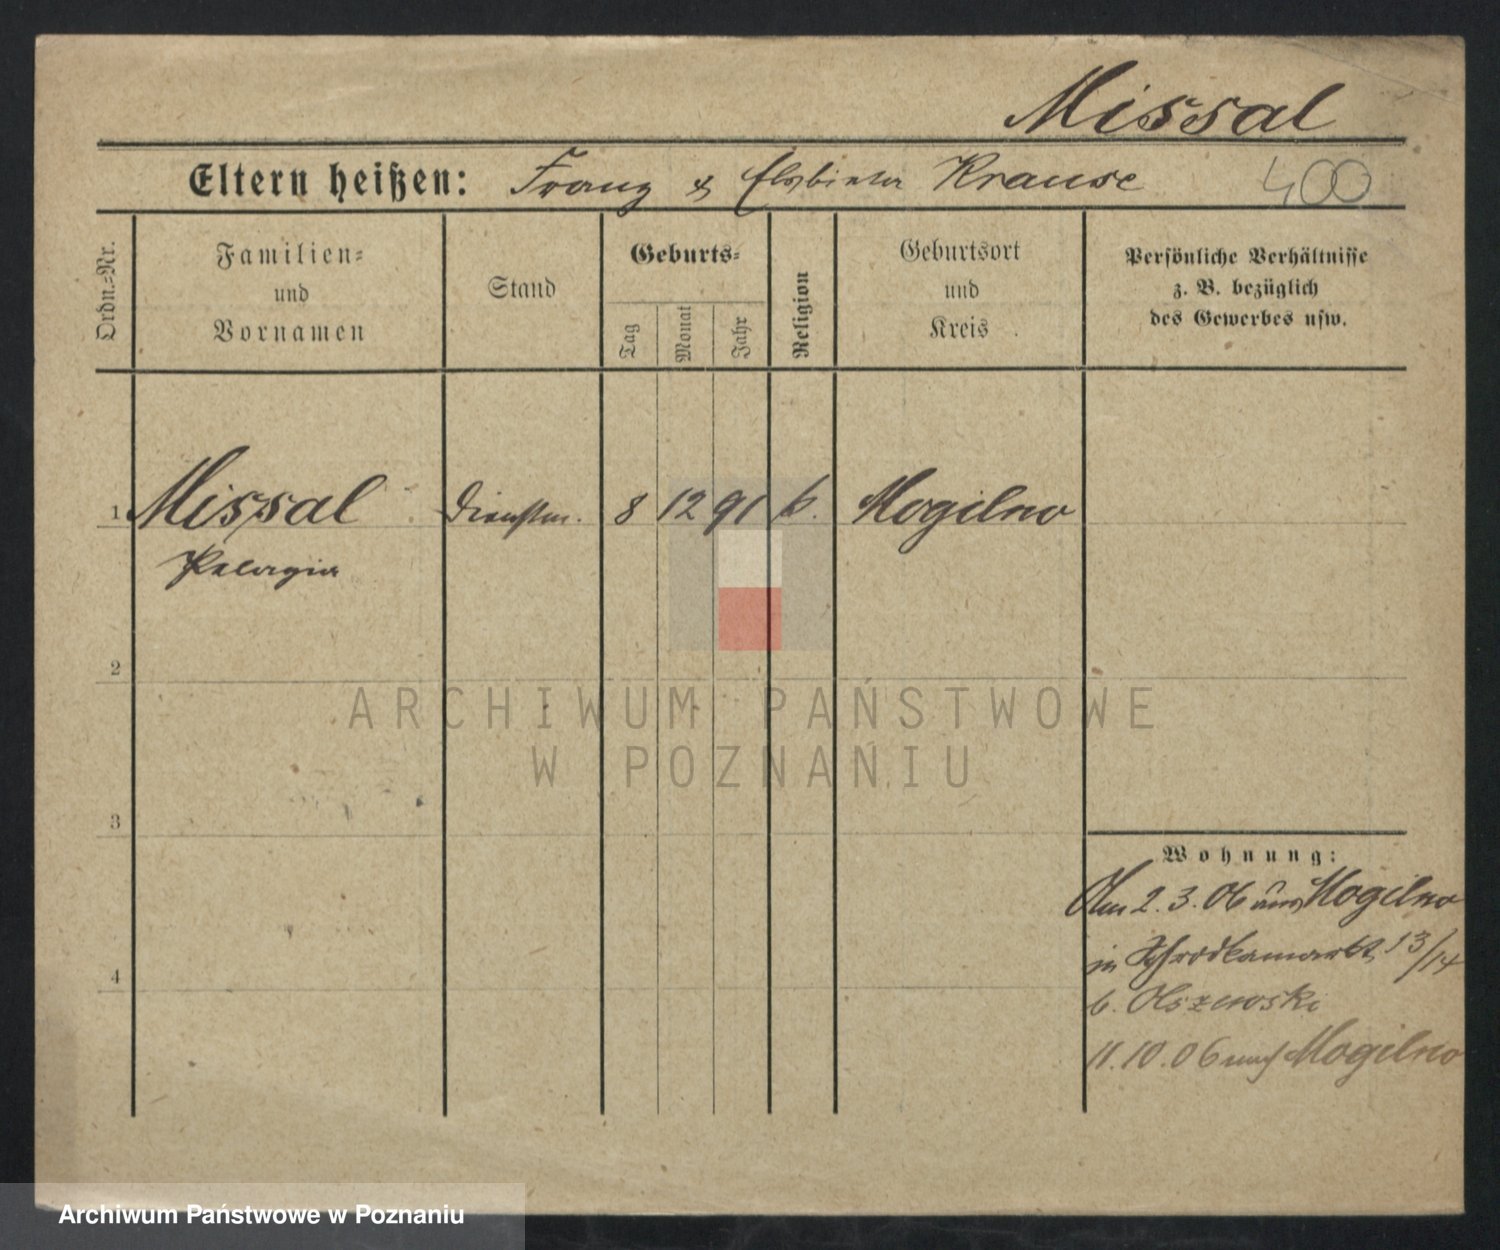 Missal
Eltern heißen: Franz & Elzbieta Krause 400
Ordn.=Nr.
Familien=
und
Vornamen
Stand
Geburts=
Tag
Monat
Jahr
Religion
Geburtsort
und
Kreis
Persönliche Verhältnisse
z. B. bezüglich
des Gewerbes usw.
1 Missal Dienstm. 8 12 91 k. Mogilno
Pelagia
2
3
4
Wohnung:
Am 2.3.06 aus Mogilno
in Schrodkamarkt 13/14
b. Olszewski
11.10.06 nach Mogilno
ARCHIWUM PAŃSTWOWE
W POZNANIU
Archiwum Państwowe w Poznaniu